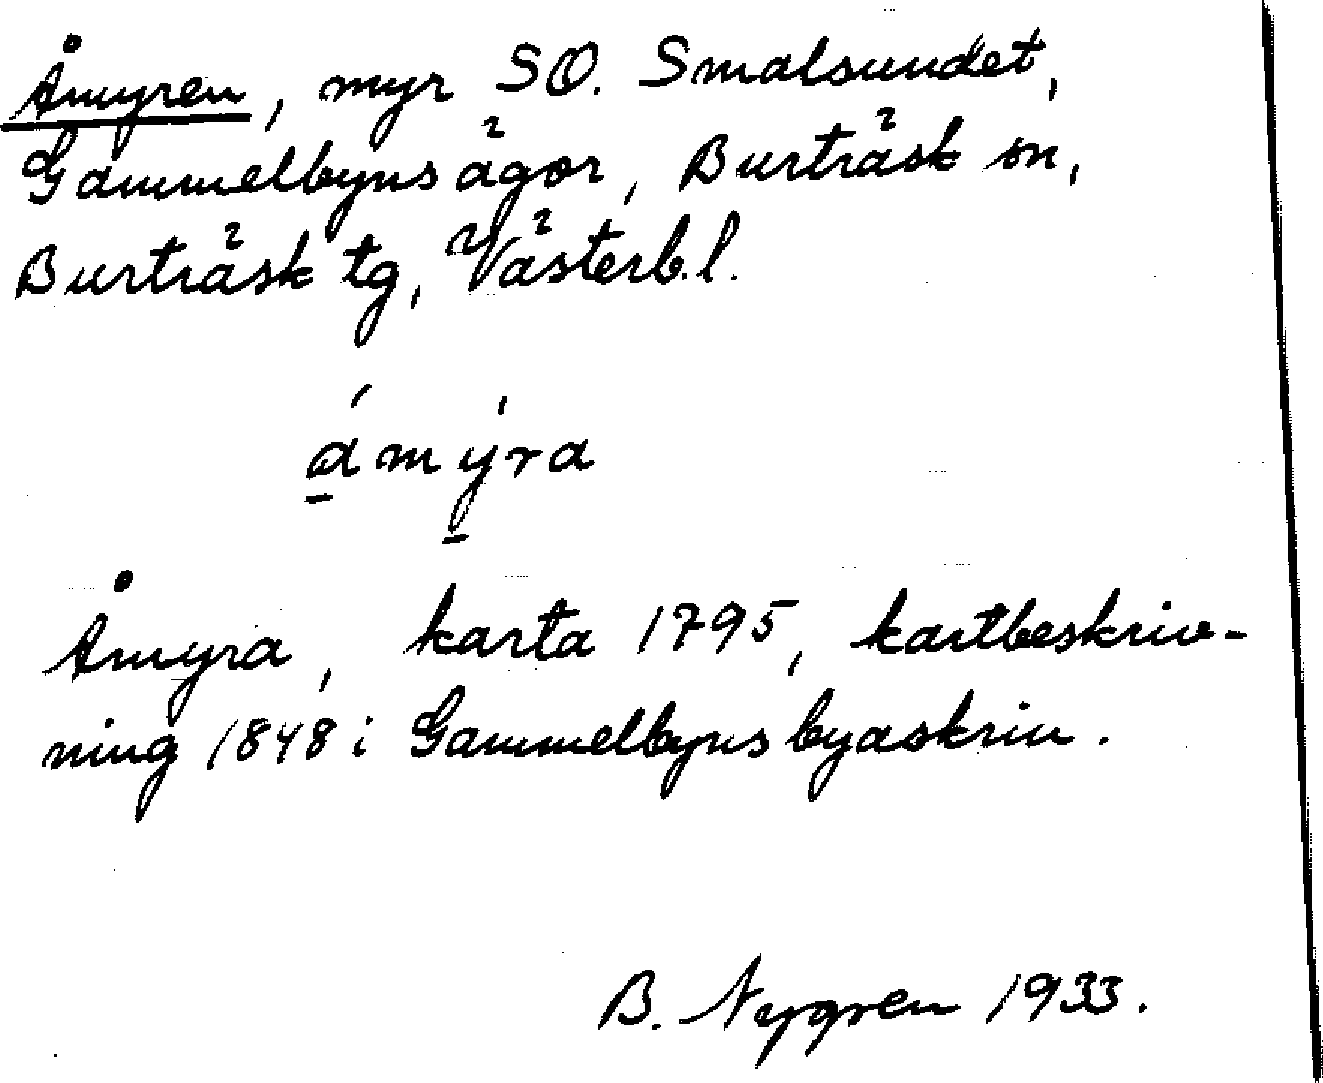 Åmyren, myr SO. Smalsundet,
Gammelbyns ägor, Burträsk sn,
Burträsk tg, Västerb.l.
åmýra
Åmyra, karta 1795, kartbeskriv-
ning 1848 i Gammelbyns byaskrin.
B. Nygren 1933.